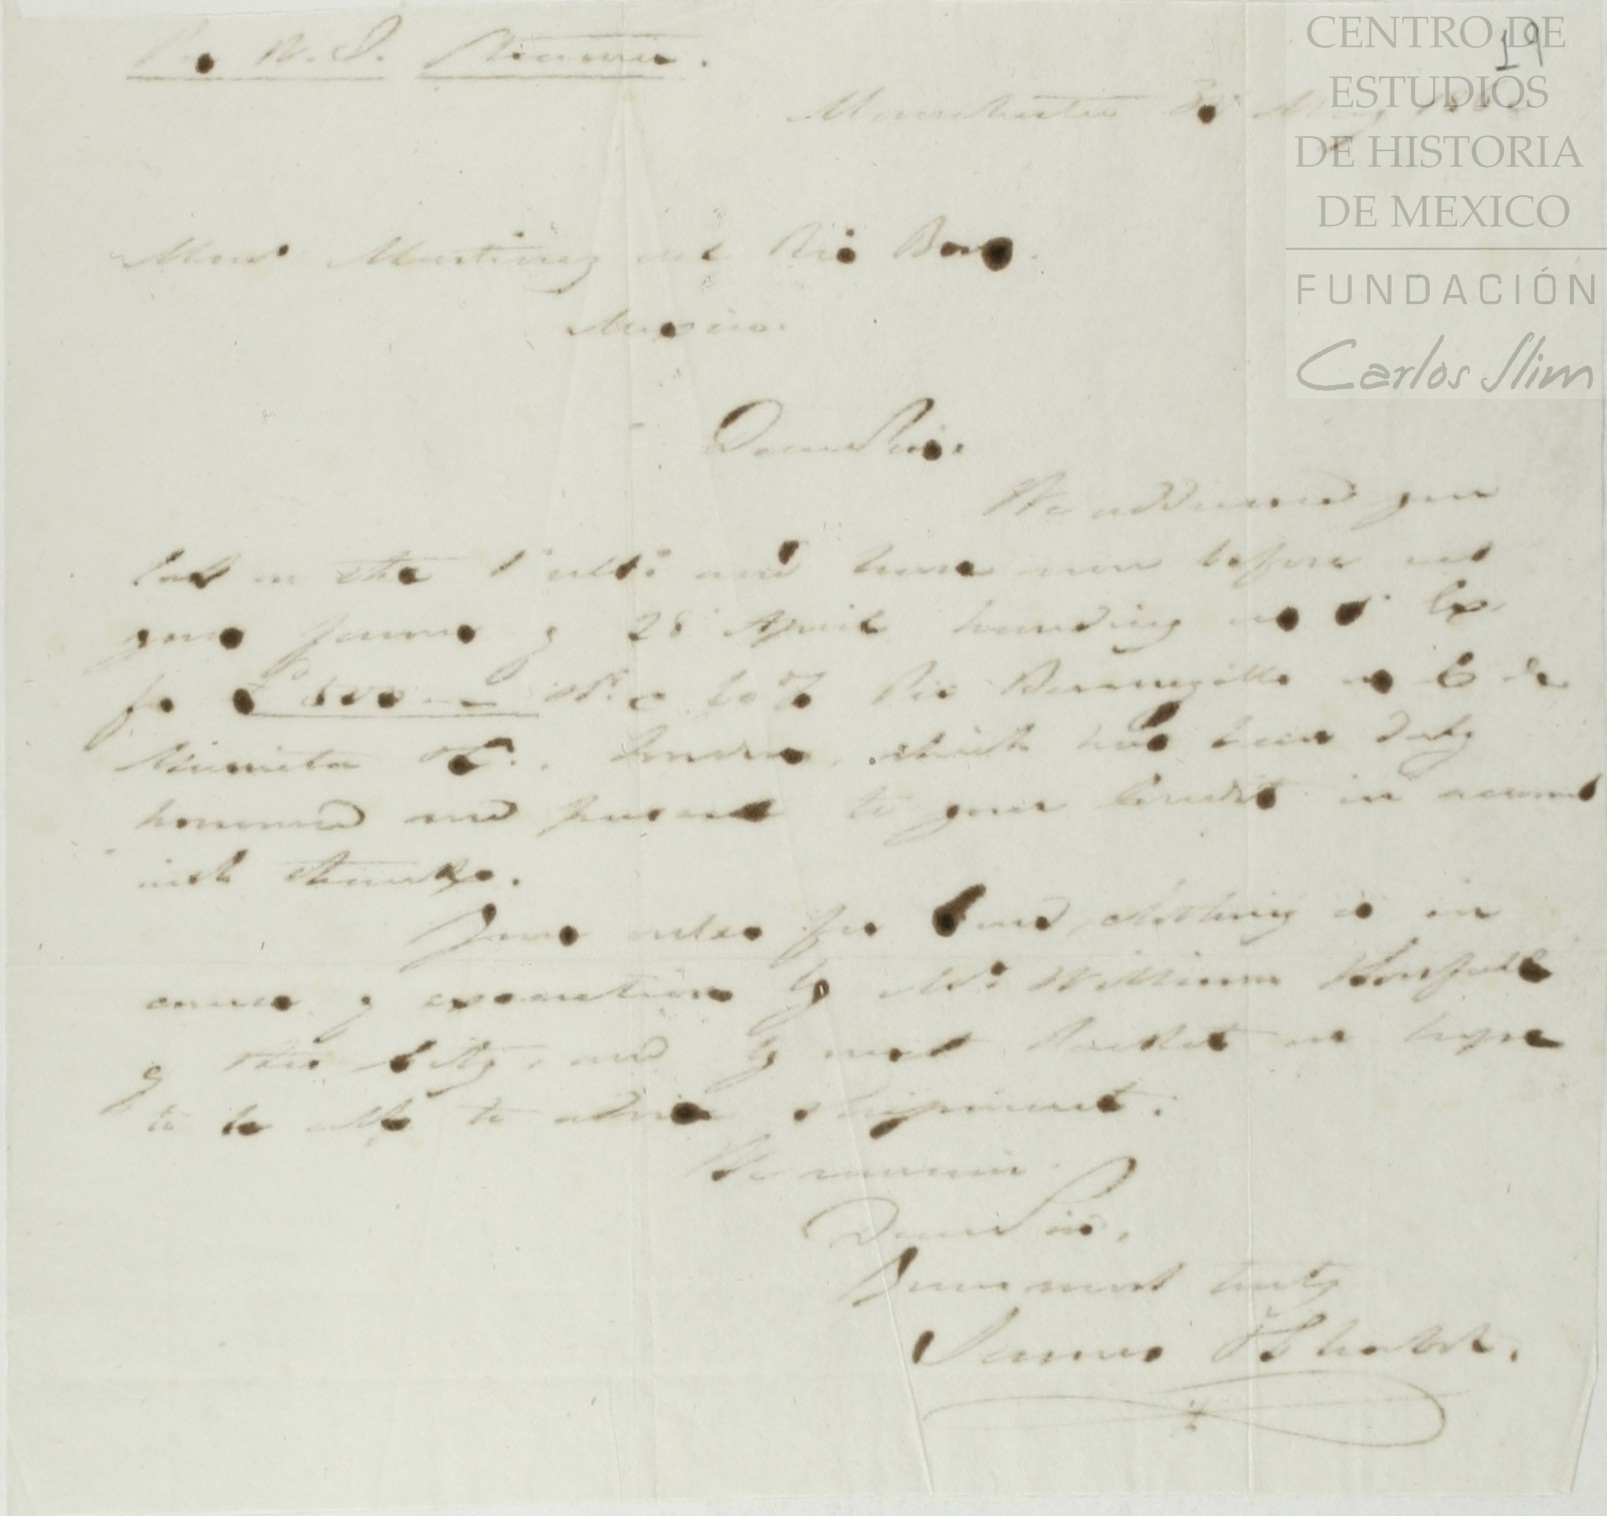 Per W. I. Steamer.
19
Manchester May
Mess.rs Martinez del Rio Bros.
Mexico.
Dear Sirs.
We addressed you
last on the 1st ulto. and have now before us
your favour of 28 April handing us Ex
for £ 500 Rio Bermegillo on C de
Murrieta & Co., London, which has been duly
honoured and passed to your Credit in account
with thanks.
Your order for Clothing is in
course of execution by Mr. William
of this City, and by next Packet we hope
to be able to advise shipment.
We remain
Dear Sirs,
Yours most truly
James
CENTRO DE
ESTUDIOS
DE HISTORIA
DE MEXICO
FUNDACIÓN
Carlos Slim